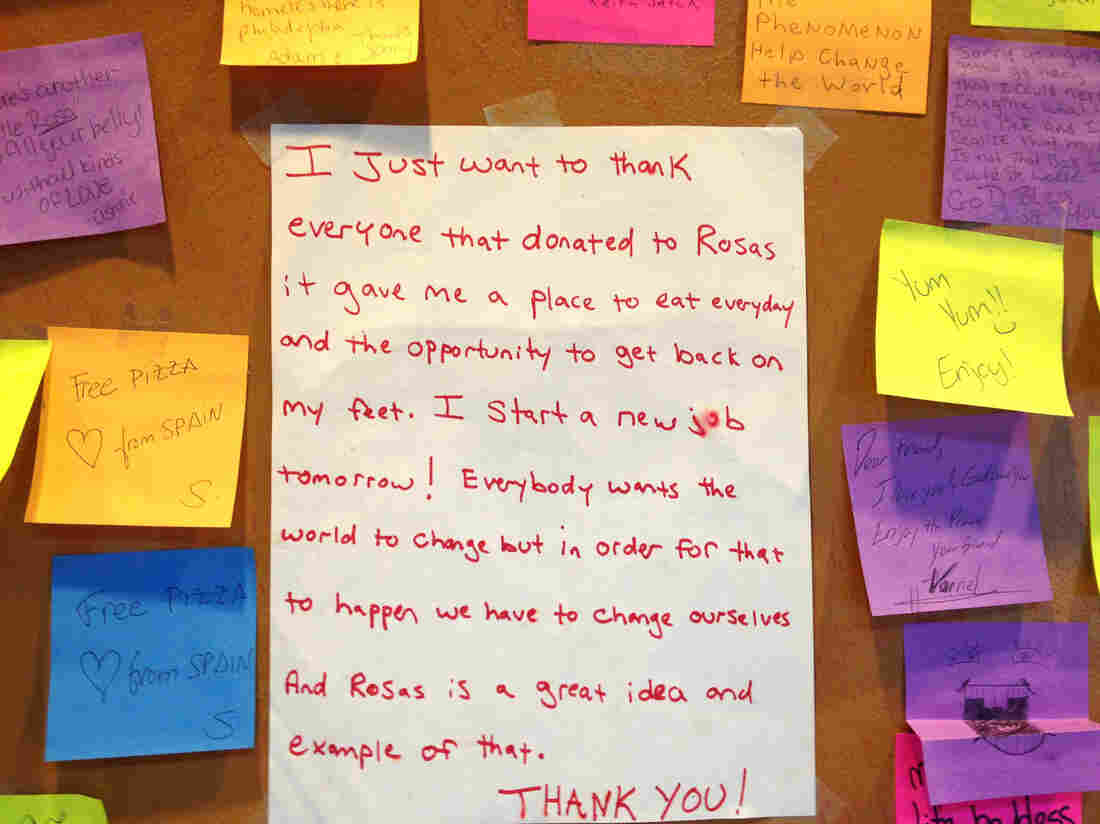 homeless here is
philadelphia
Thanks
Sorry
Adam
Phenomenon
Help Change
the World
another
Rosa
your belly!
kinds
OF LOVE
I Just want to thank
everyone that donated to Rosas
it gave me a place to eat everyday
and the opportunity to get back on
my feet. I start a new job
tomorrow! Everybody wants the
world to change but in order for that
to happen we have to change ourselves
And Rosas is a great idea and
example of that.
THANK YOU!
Free PIZZA
♡ from SPAIN
S
Free PIZZA
♡ from SPAIN
S
that I could never
Imagine what
feel like and I
Realize that my
Is not that bad
GOD Bless
YOU
Yum
Yum!!
Enjoy!
Dear friend,
I love you!
Enjoy the Pizza
Your friend